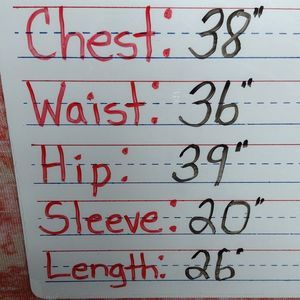 Chest: 38"
Waist: 36"
Hip: 39"
Sleeve: 20"
Length: 26"